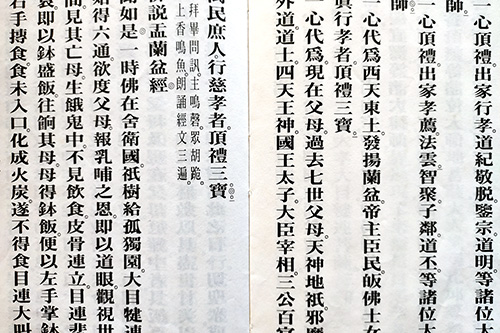 一心頂禮出家行孝道紀敬脫鑒宗道明等諸位
師
一心頂禮出家孝薦法雲智聚子鄰道丕等諸位
師
一心代為四天東土發揚蘭盆帝主臣民皈佛士女
真行孝者頂禮三寶
一心代為現在父母過去七世父母天神地祇邪魔
外道道士四天王神國王太子大臣宰相三公百官
萬民庶人行慈孝者頂禮三寶
拜畢問訊主鳴磬眾胡跪
上香鳴魚朗誦經文三遍
佛說盂蘭盆經
聞如是一時佛在舍衛國祇樹給孤獨園大目犍連
始得六通欲度父母報乳哺之恩即以道眼觀視世
間見其亡母生餓鬼中不見飲食皮骨連立目連悲
哀即以鉢盛飯往餉其母母得鉢飯便以左手掌鉢
右手摶食食未入口化成火炭遂不得食目連大叫